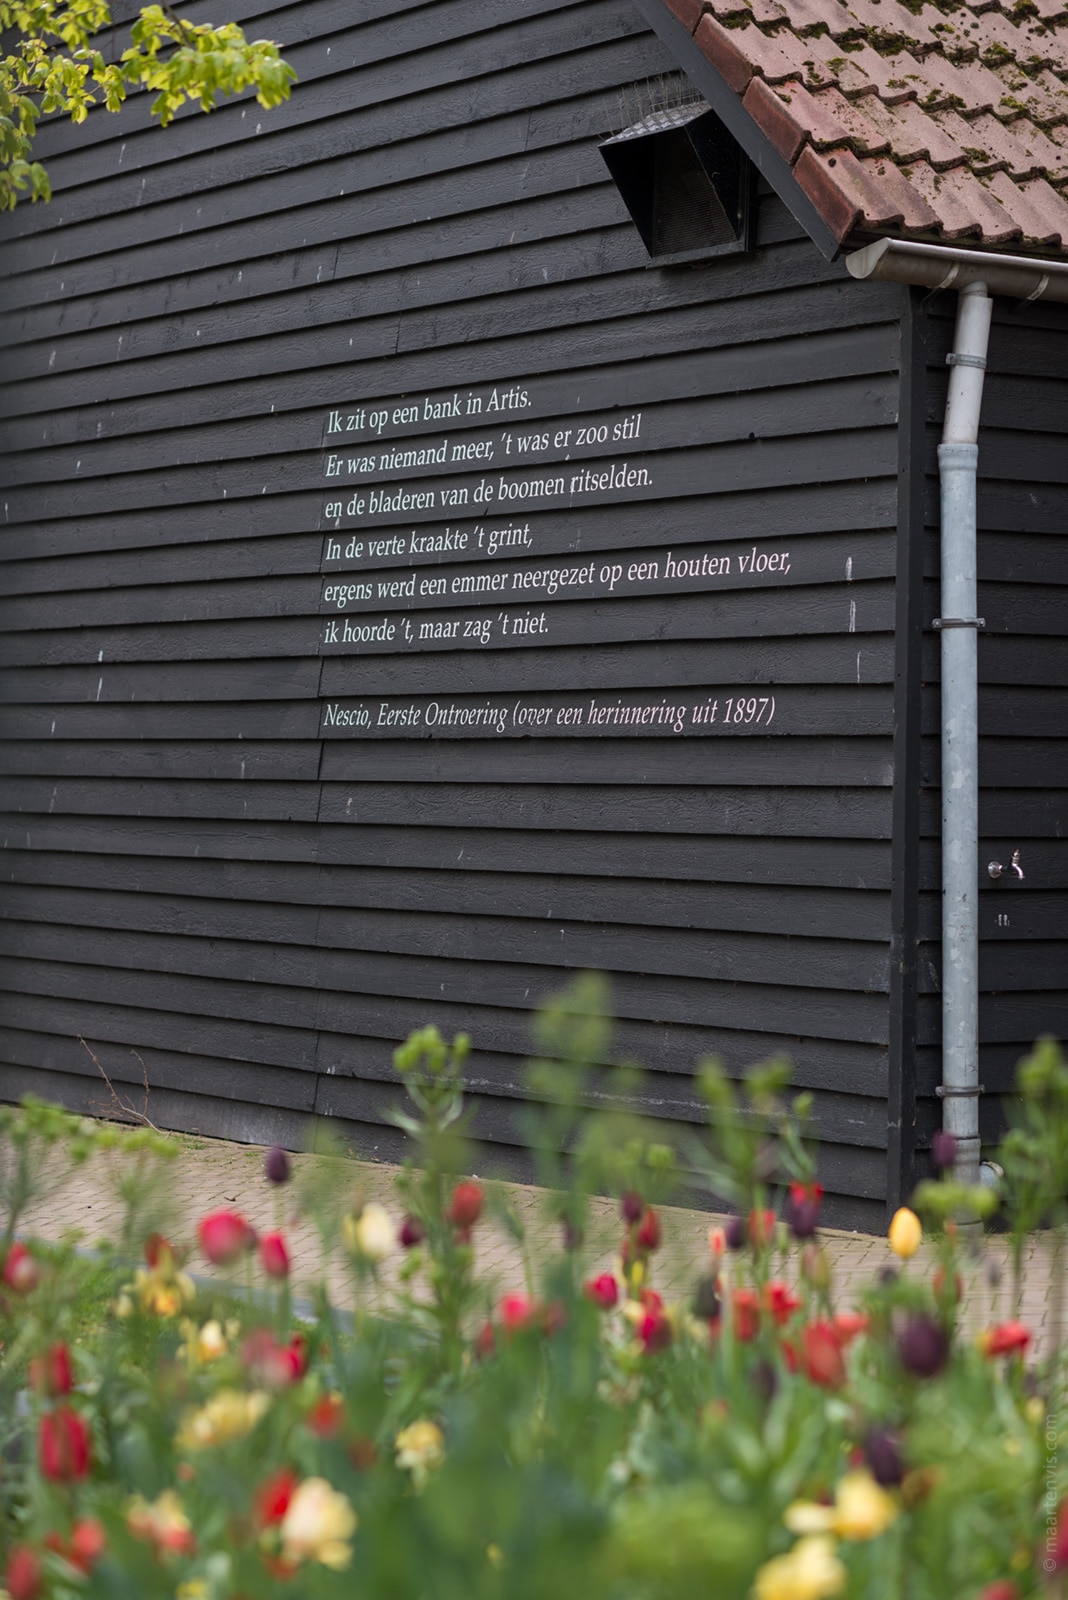 Ik zit op een bank in Artis.
Er was niemand meer, 't was er zoo stil
en de bladeren van de boomen ritselden.
In de verte kraakte 't grint,
ergens werd een emmer neergezet op een houten vloer,
ik hoorde 't, maar zag 't niet.
Nescio, Eerste Ontroering (over een herinnering uit 1897)
© maartenvis.com